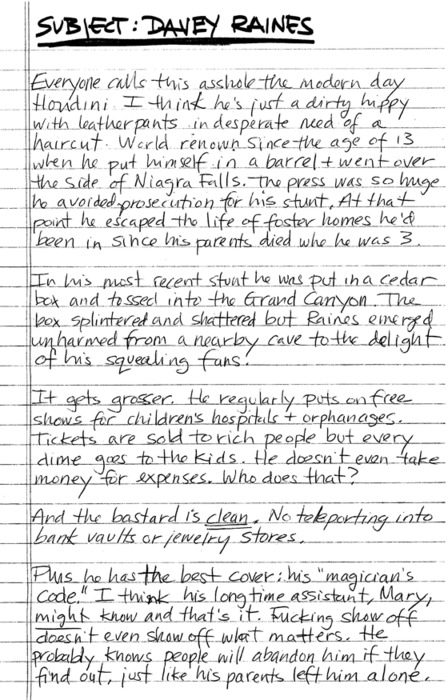 SUBJECT: DAVEY RAINES
Everyone calls this asshole the modern day
Houdini. I think he's just a dirty hippy
with leather pants in desperate need of a
haircut. World renown since the age of 13
when he put himself in a barrel + went over
the side of Niagra Falls. The press was so huge
he avoided prosecution for his stunt. At that
point he escaped the life of foster homes he'd
been in since his parents died whe he was 3.
In his most recent stunt he was put in a cedar
box and tossed into the Grand Canyon. The
box splintered and shattered but Raines emerged
unharmed from a nearby cave to the delight
of his squealing fans.
It gets grosser. He regularly puts on free
shows for children's hospitals + orphanages.
Tickets are sold to rich people but every
dime goes to the kids. He doesn't even take
money for expenses. Who does that?
And the bastard is clean. No teleporting into
bank vaults or jewelry stores.
Plus he has the best cover: his "magician's
code." I think his longtime assistant, Mary,
might know and that's it. Fucking show off
doesn't even show off what matters. He
probably knows people will abandon him if they
find out, just like his parents left him alone.